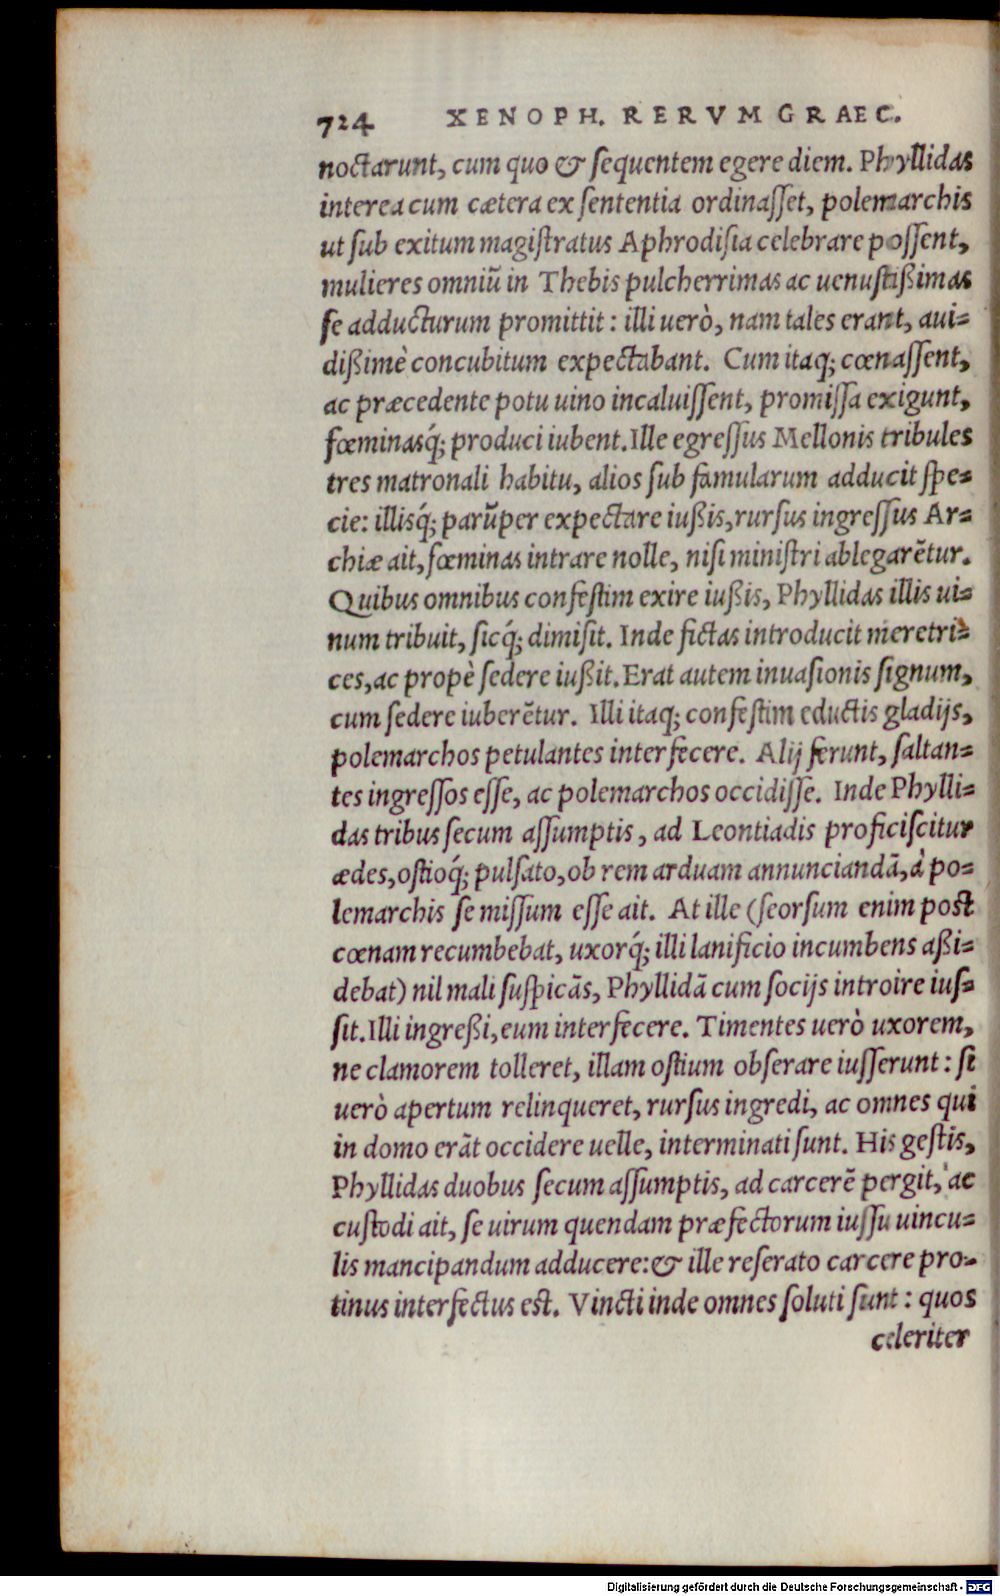 724 XENOPH. RERVM GRAEC.
noctarunt, cum quo & sequentem egere diem. Phyllidas
interea cum cætera ex sententia ordinasset, polemarchis
ut sub exitum magistratus Aphrodisia celebrare possent,
mulieres omniũ in Thebis pulcherrimas ac uenustißimas
se adducturum promittit: illi uerò, nam tales erant, aui-
dißimè concubitum expectabant. Cum itaq; cœnassent,
ac præcedente potu uino incaluissent, promissa exigunt,
fœminasq́; produci iubent. Ille egressus Mellonis tribules
tres matronali habitu, alios sub famularum adducit spe-
cie: illisq́; parũper expectare iußis, rursus ingressus Ar-
chiæ ait, fœminas intrare nolle, nisi ministri ablegarẽtur.
Quibus omnibus confestim exire iußis, Phyllidas illis ui-
num tribuit, sicq́; dimisit. Inde fictas introducit meretri-
ces, ac propè sedere iußit. Erat autem inuasionis signum,
cum sedere iuberẽtur. Illi itaq; confestim eductis gladijs,
polemarchos petulantes interfecere. Alij ferunt, saltan-
tes ingressos esse, ac polemarchos occidisse. Inde Phylli-
das tribus secum assumptis, ad Leontiadis proficiscitur
ædes, ostioq́; pulsato, ob rem arduam annunciandã, à po-
lemarchis se missum esse ait. At ille (seorsum enim post
cœnam recumbebat, uxorq́; illi lanificio incumbens aßi-
debat) nil mali suspicãs, Phyllidã cum socijs introire ius-
sit. Illi ingreßi, eum interfecere. Timentes uerò uxorem,
ne clamorem tolleret, illam ostium obserare iusserunt: si
uerò apertum relinqueret, rursus ingredi, ac omnes qui
in domo erãt occidere uelle, interminati sunt. His gestis,
Phyllidas duobus secum assumptis, ad carcerẽ pergit, ac
custodi ait, se uirum quendam præfectorum iussu uincu-
lis mancipandum adducere: & ille reserato carcere pro-
tinus interfectus est. Vincti inde omnes soluti sunt: quos
celeriter
Digitalisierung gefördert durch die Deutsche Forschungsgemeinschaft - DFG